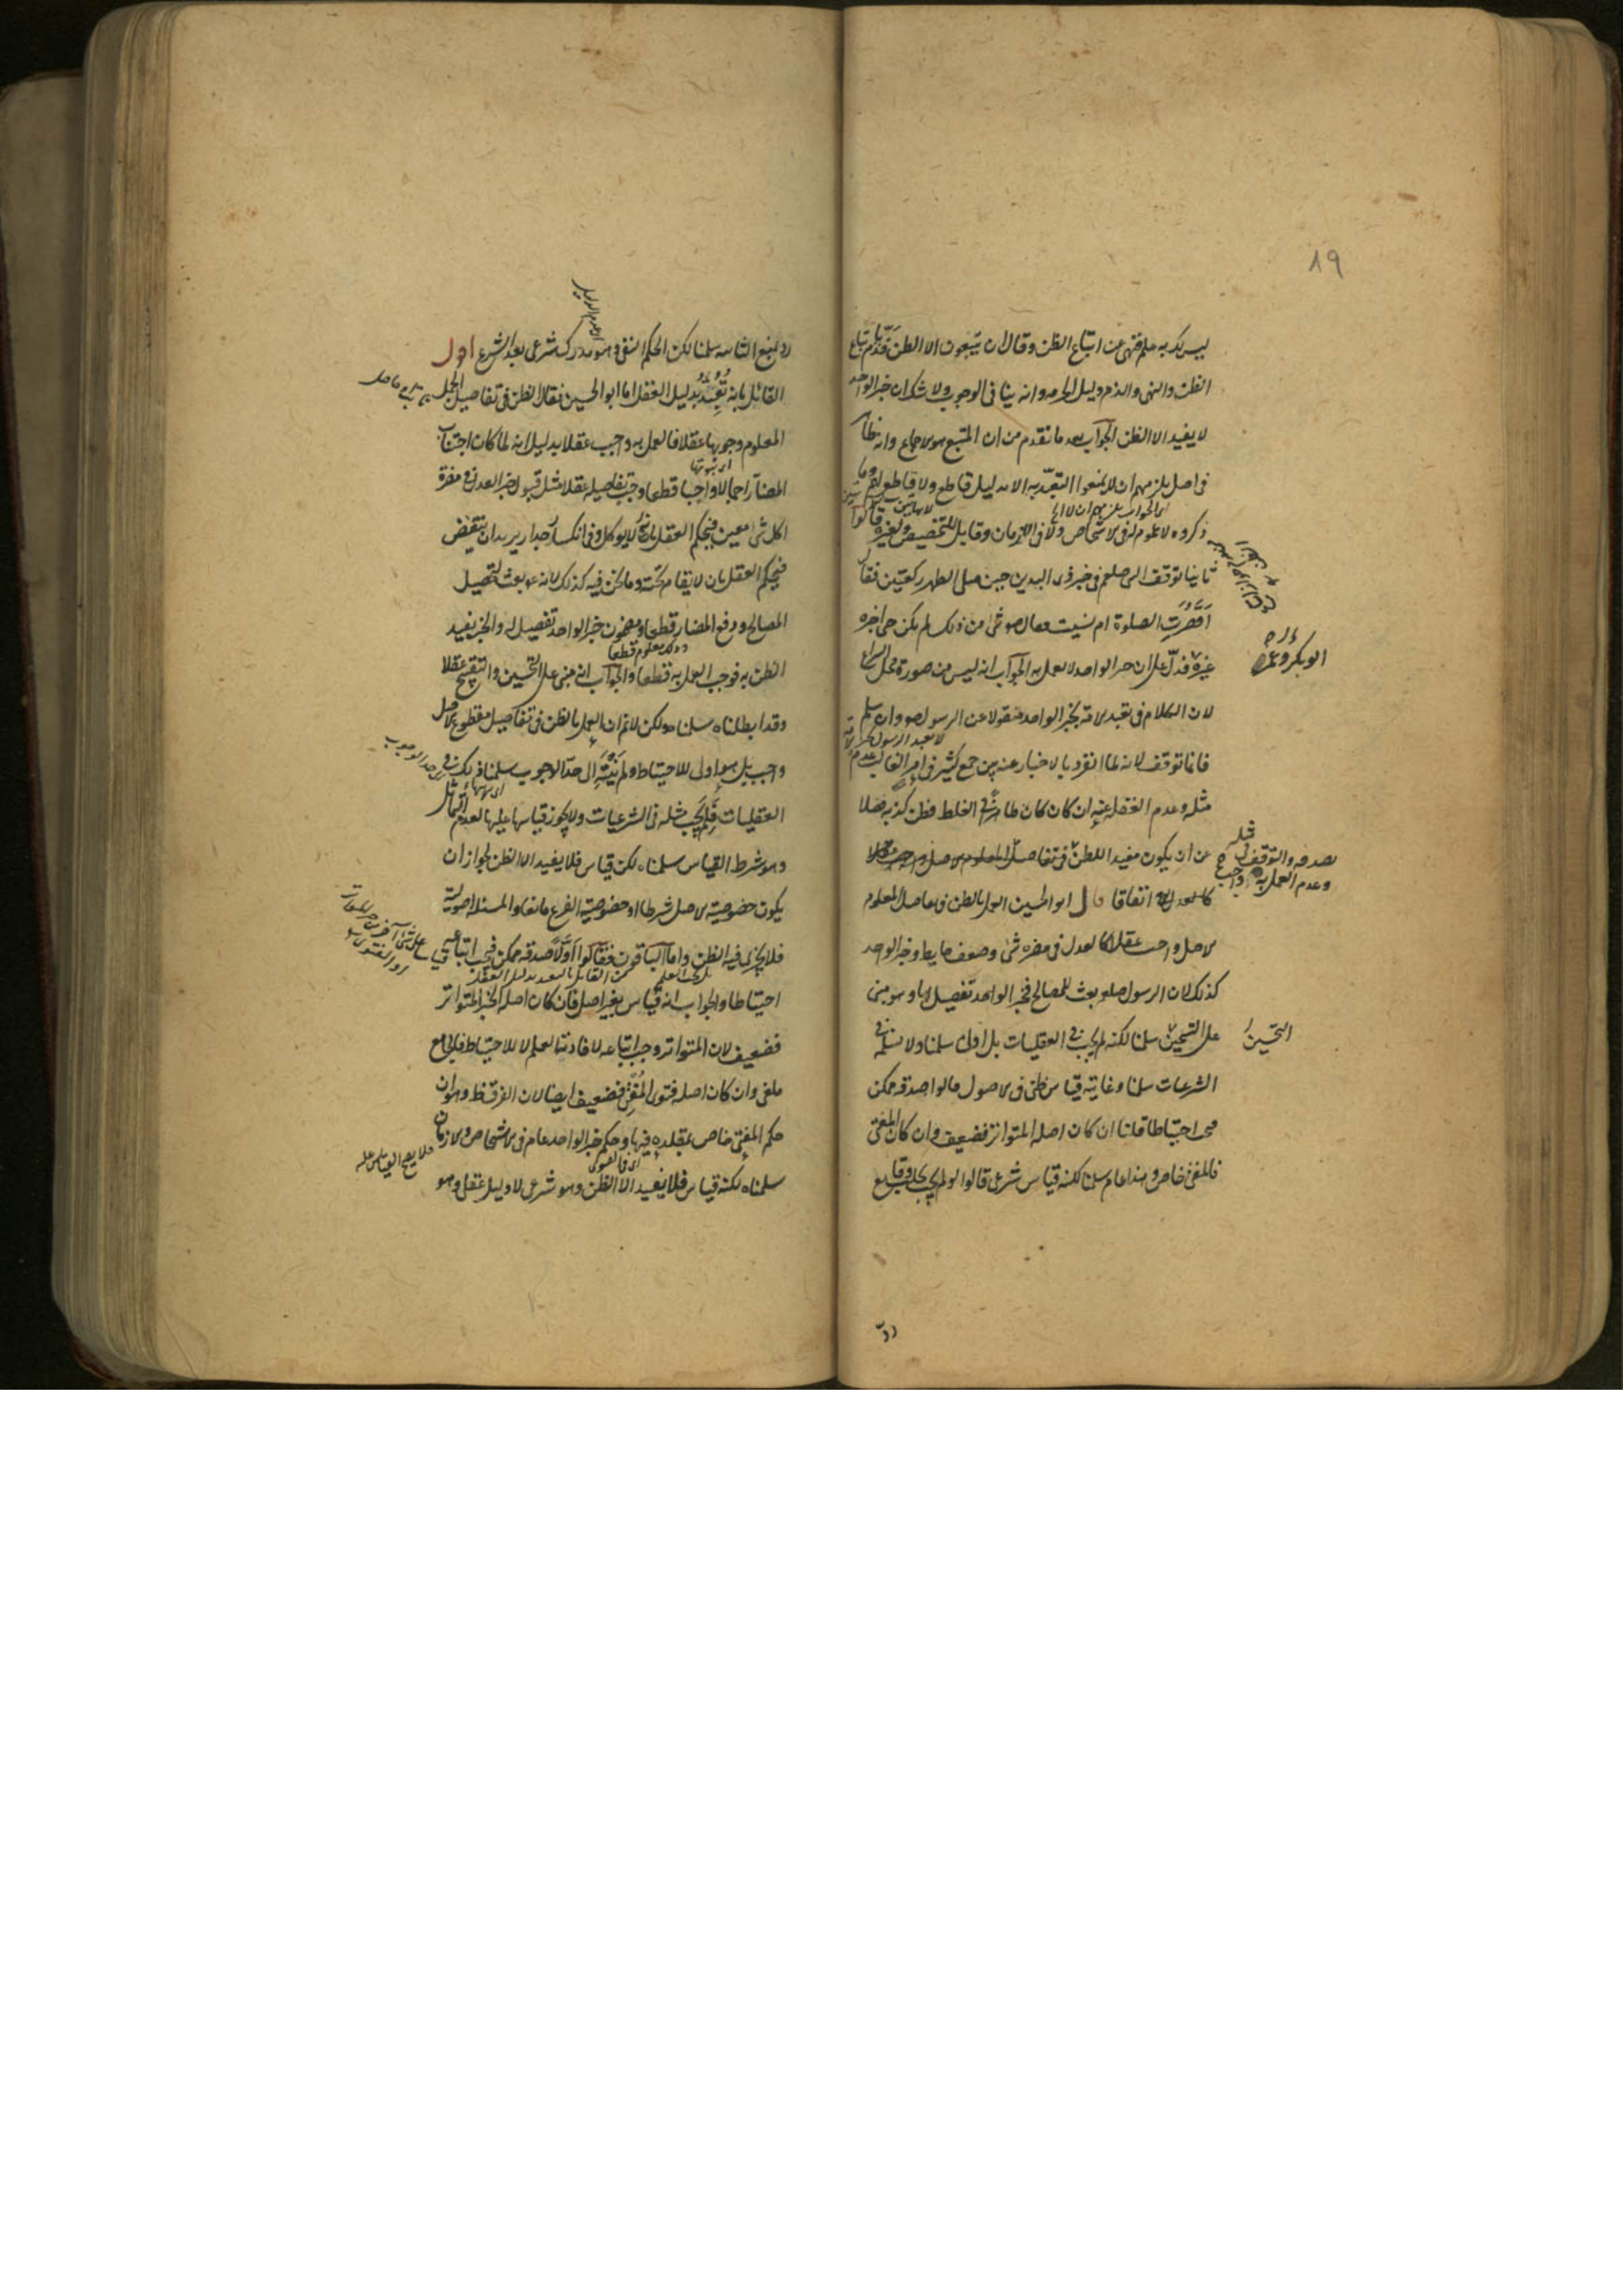 ٨٩
ليس لك به علم فنهى عن اتباع الظن وقال ان يتبعون الا الظن فذم باتباع
الظن والنهى والذم دليل الحرمة وانه ينافى الوجوب ولا شك ان خبر الواحد
لا يفيد الا الظن الجواب بعد ما تقدم من ان المتبع هو الاجماع وانه ظاهر
فى اصل يلزمهم ان لا يمنعوا التعبد به الا بدليل قاطع ولا قاطع لهم وما
ذكروه لا عموم له فى الاشخاص ولا فى الازمان وقابل للتخصيص ولغيره قالوا
ثانيا توقف النبى صلعم فى خبر ذى اليدين حين صلى الظهر ركعتين فقال
اقصرت الصلوة ام نسيت فقال صلعم شئ من ذلك لم يكن حتى اخبره
ابو بكر وعمر
غيره فدل على ان خبر الواحد لا يعمل به الجواب انه ليس من صورة محل النزاع
لان الكلام فى تعبد الامة بخبر الواحد منقولا عن الرسول صلعم وان سلم
فانما توقف لانه لما انفرد بالاخبار عنه بين جمع كثير فى امر الغالب عدم
مثله وعدم الغفلة عنه ان كان كان ظاهرا فى الغلط فظن كذبه فضلا
عن ان يكون مفيدا للظن فى تفاصيل المعلوم الاصل واجب عقلا
بصدقه والتوقف فى مثله
وعدم العمل به واجب
كالعدل اتفاقا قال ابو الحسين العمل بالظن فى تفاصيل المعلوم
الاصل واجب عقلا كالعدل فى مضرة شئ وضعف حايط وخبر الواحد
كذلك لان الرسول صلعم بعث للمصالح فخبر الواحد تفصيل لها وهو مبنى
على التحسين سلمنا لكنه لم يجب فى العقليات بل اولى سلمنا ولا نسلمه فى
التحسين
الشرعيات سلمنا وغايته قياس ظنى فى الاصول قالوا صدقه ممكن
فيجب احتياطا قلنا ان كان اصله المتواتر فضعيف وان كان المفتى
فالمفتى خاص وهذا عام سلمنا لكنه قياس شرعى قالوا لو لم يجب لخلت وقايع
رد
رد بمنع الثانية سلمنا لكن الحكم النفى وهو مدرك شرعى بعد الشرع اول
القائل بانه تعبد بدليل العقل اما ابو الحسين فقال الظن فى تفاصيل الجمل
المعلوم وجوبها عقلا فالعمل به واجب عقلا بدليل انه لما كان اجتناب
المضار اجمالا واجبا قطعا وجب تفاصيله عقلا مثل قبول خبر العدل فى مضرة
اكل شئ معين فيحكم العقل بانه لا يؤكل وفى انكسار جدار يريد ان ينقض
فيحكم العقل بان لا يقام تحته وما نحن فيه كذلك لانه عم بعث لتحصيل
المصالح ودفع المضار قطعا ومضمون خبر الواحد تفصيل له والخبر يفيد
وذلك معلوم قطعا
الظن به فوجب العمل به قطعا والجواب انه مبنى على التحسين والتقبيح عقلا
وقد ابطلناه سلمناه ولكن لا نم ان العمل بالظن فى تفاصيل مقطوع الاصل
واجب بل هو اولى للاحتياط ولم ينته الى حد الوجوب سلمنا ذلك فى
العقليات فلم يجب مثله فى الشرعيات ولا يجوز قياسها عليها لعدم التماثل
وهو شرط القياس سلمناه لكن قياس فلا يفيد الا الظن لجواز ان
يكون خصوصية الاصل شرطا او خصوصية الفرع مانعا والمسئلة اصولية
فلا يجزى فيه الظن واما الباقون فقالوا اولا صدقه ممكن فيجب اتباعه
من القائل بالتعبد بدليل العقل
احتياطا والجواب انه قياس بغير اصل فان كان اصله الخبر المتواتر
فضعيف لان المتواتر وجب اتباعه لافادته العلم لا للاحتياط فالجامع
ملغى وان كان اصله فتوى المفتى فضعيف ايضا لان الفرق ظ وهو ان
حكم المفتى خاص بمقلده فيها وحكم خبر الواحد عام فى الاشخاص والازمان
فلا يصح القياس عليه
سلمناه لكنه قياس فلا يفيد الا الظن وهو شرعى لا دليل عقلى وهو